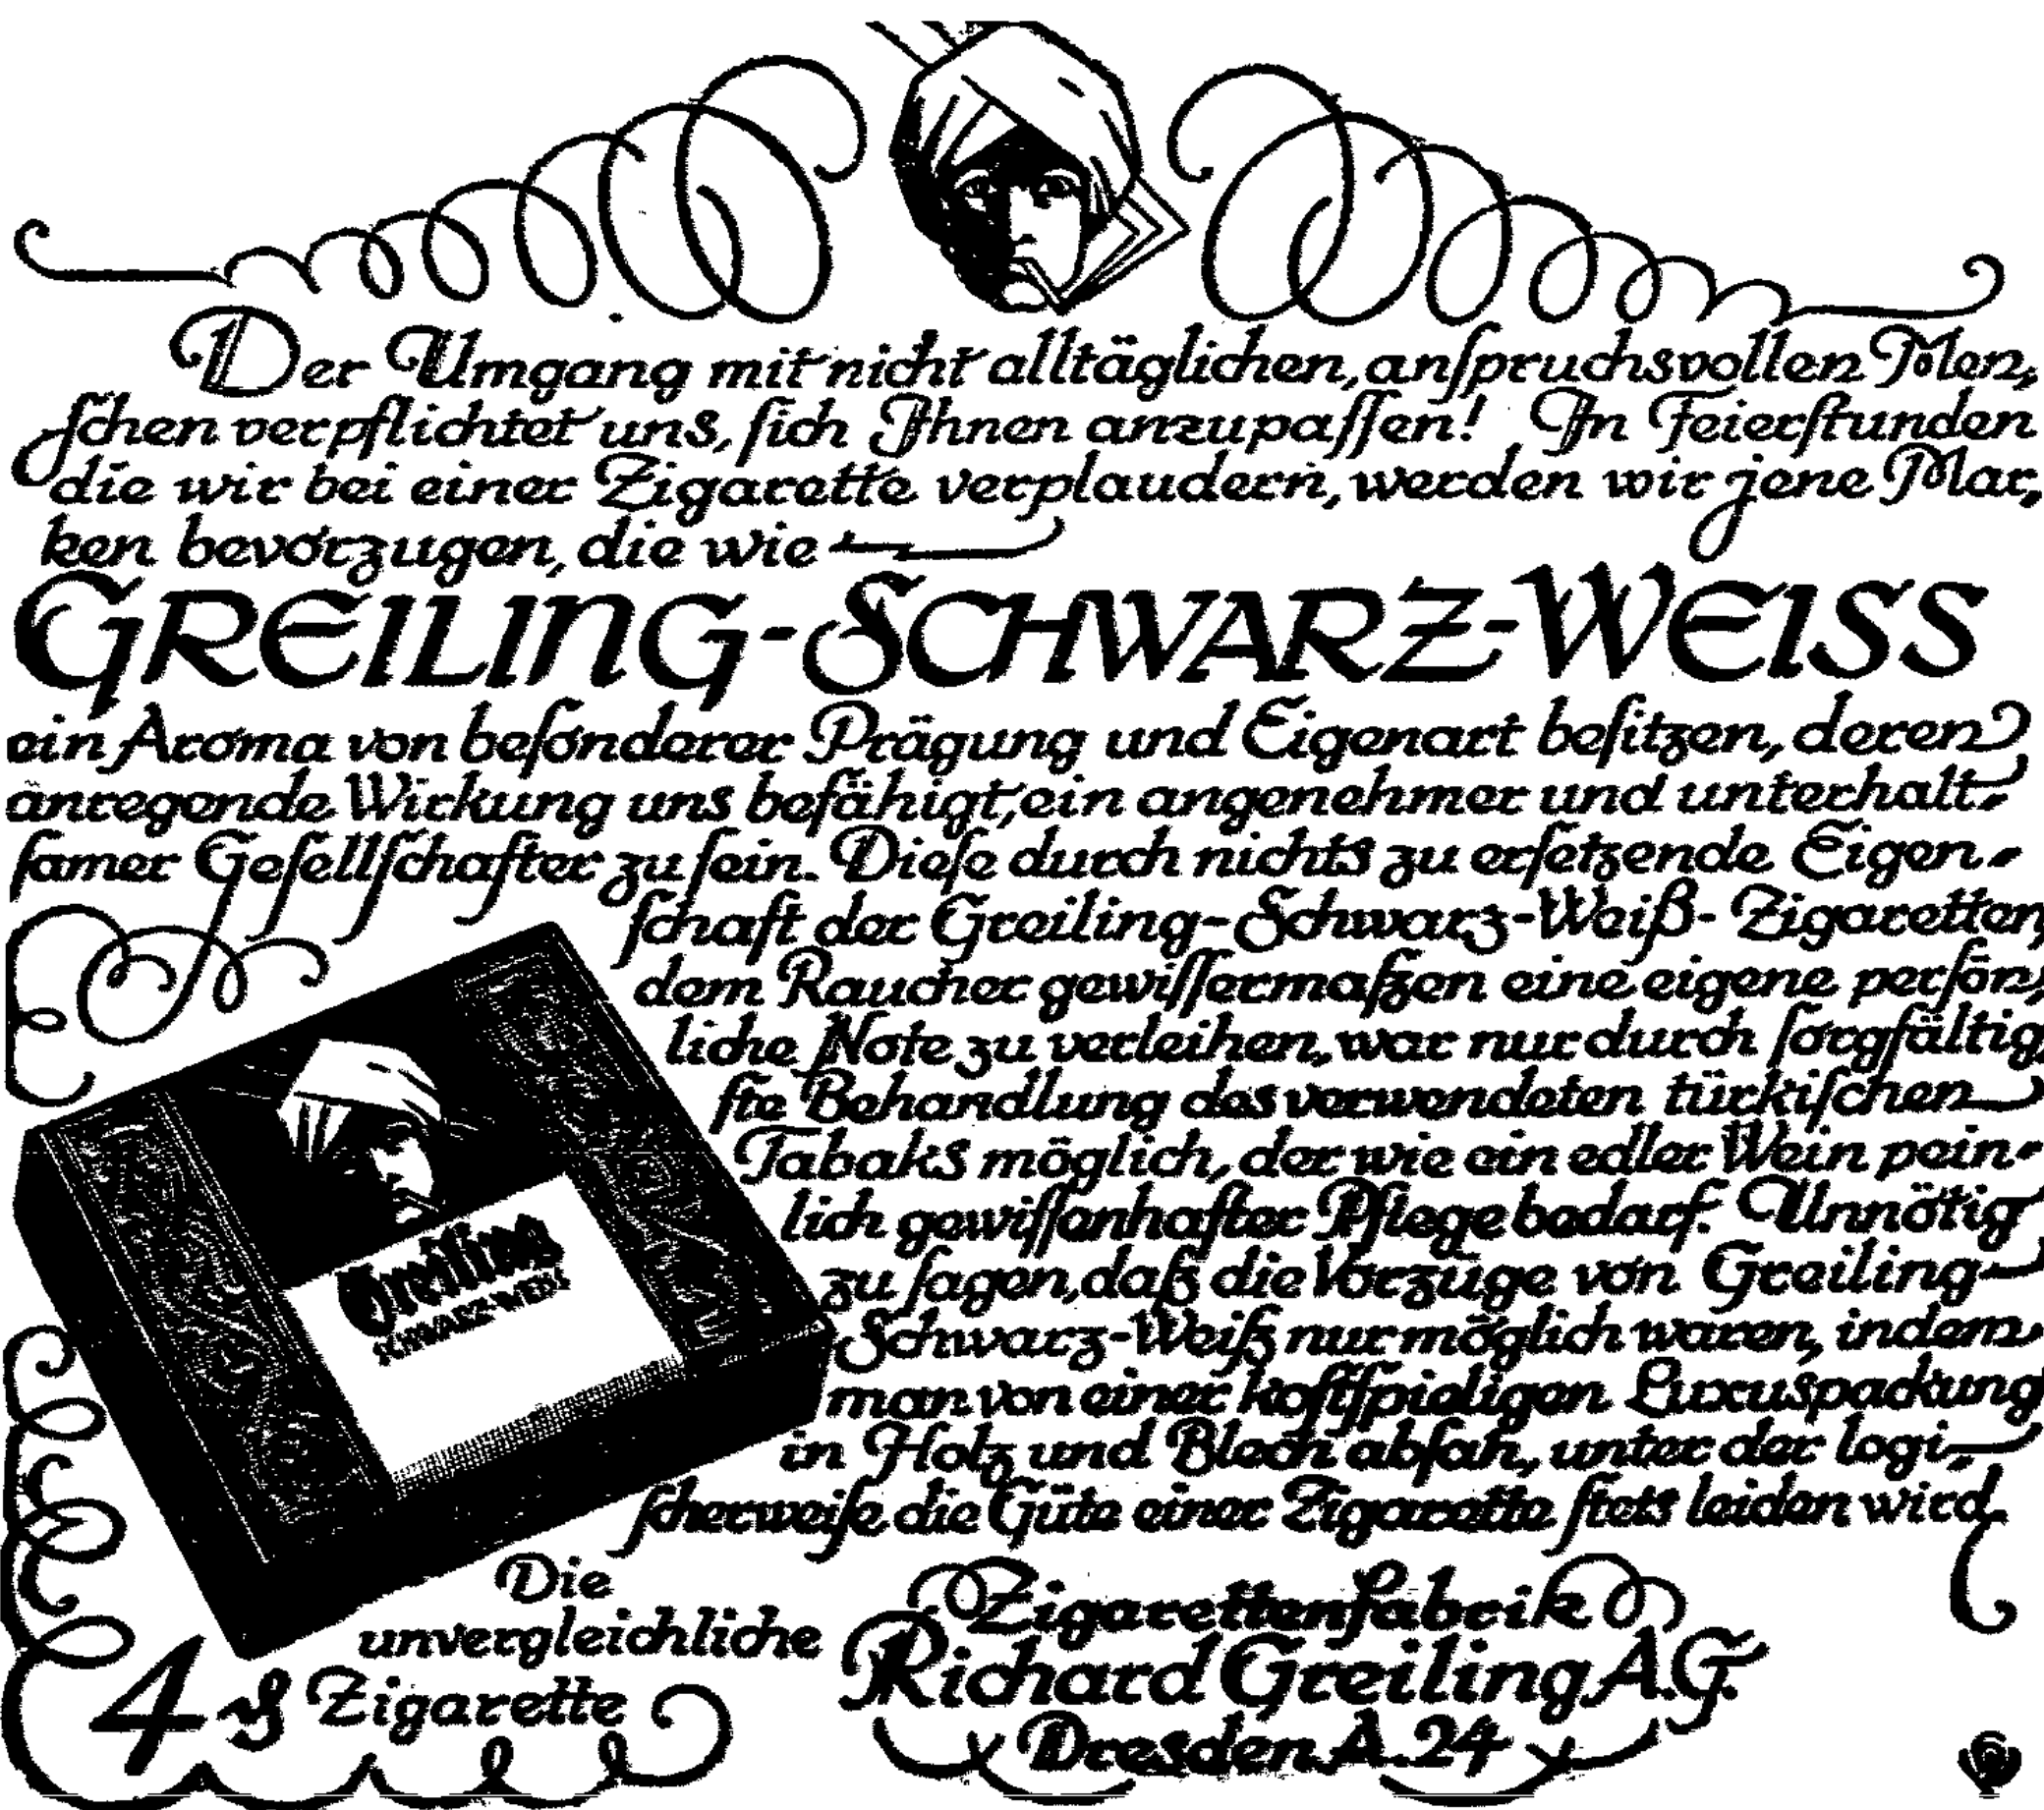 Der Umgang mit nicht alltäglichen, anſpruchsvollen Men-
ſchen verpflichtet uns, ſich Ihnen anzupaſſen! In Feierſtunden
die wir bei einer Zigarette verplaudern, werden wir jene Mar-
ken bevorzugen, die wie
GREILING-SCHWARZ-WEISS
ein Aroma von beſonderer Prägung und Eigenart beſitzen, deren
anregende Wirkung uns befähigt, ein angenehmer und unterhalt-
ſamer Geſellſchafter zu ſein. Dieſe durch nichts zu erſetzende Eigen-
ſchaft der Greiling-Schwarz-Weiß-Zigaretten,
dem Raucher gewiſſermaßen eine eigene perſön-
liche Note zu verleihen, war nur durch ſorgfältig-
ſte Behandlung des verwendeten türkiſchen
Tabaks möglich, der wie ein edler Wein pein-
lich gewiſſenhafter Pflege bedarf. Unnötig
zu ſagen, daß die Vorzüge von Greiling-
Schwarz-Weiß nur möglich waren, indem
man von einer koſtſpieligen Luxuspackung
in Holz und Blech abſah, unter der logi-
ſcherweiſe die Güte einer Zigarette ſtets leiden wird.
Greiling
SCHWARZ-WEISS
Die
unvergleichliche
4 ₰ Zigarette
Zigarettenfabrik
Richard Greiling A.G.
Dresden A. 24